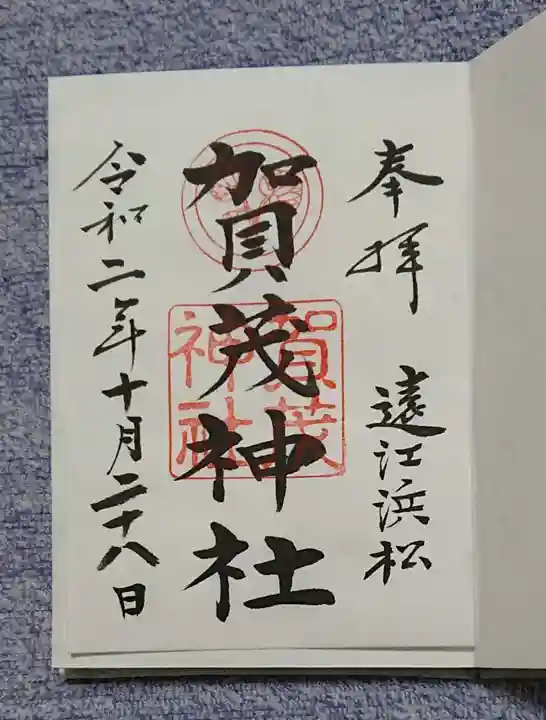 奉拝　遠江浜松
賀茂神社
賀茂
神社
令和二年十月二十八日